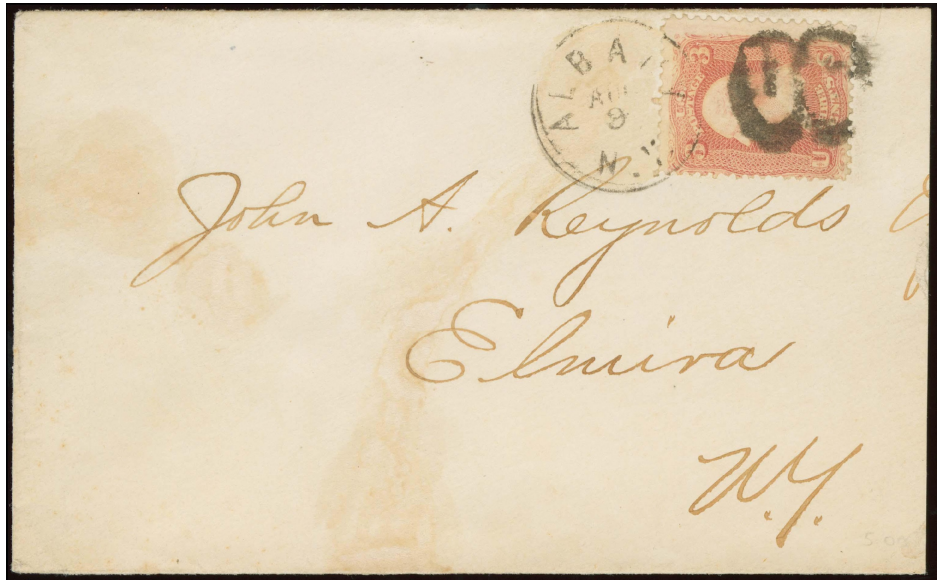 ALBANY
AUG
9
N.Y.
3 3
U S
John A. Reynolds
Elmira
N.Y.